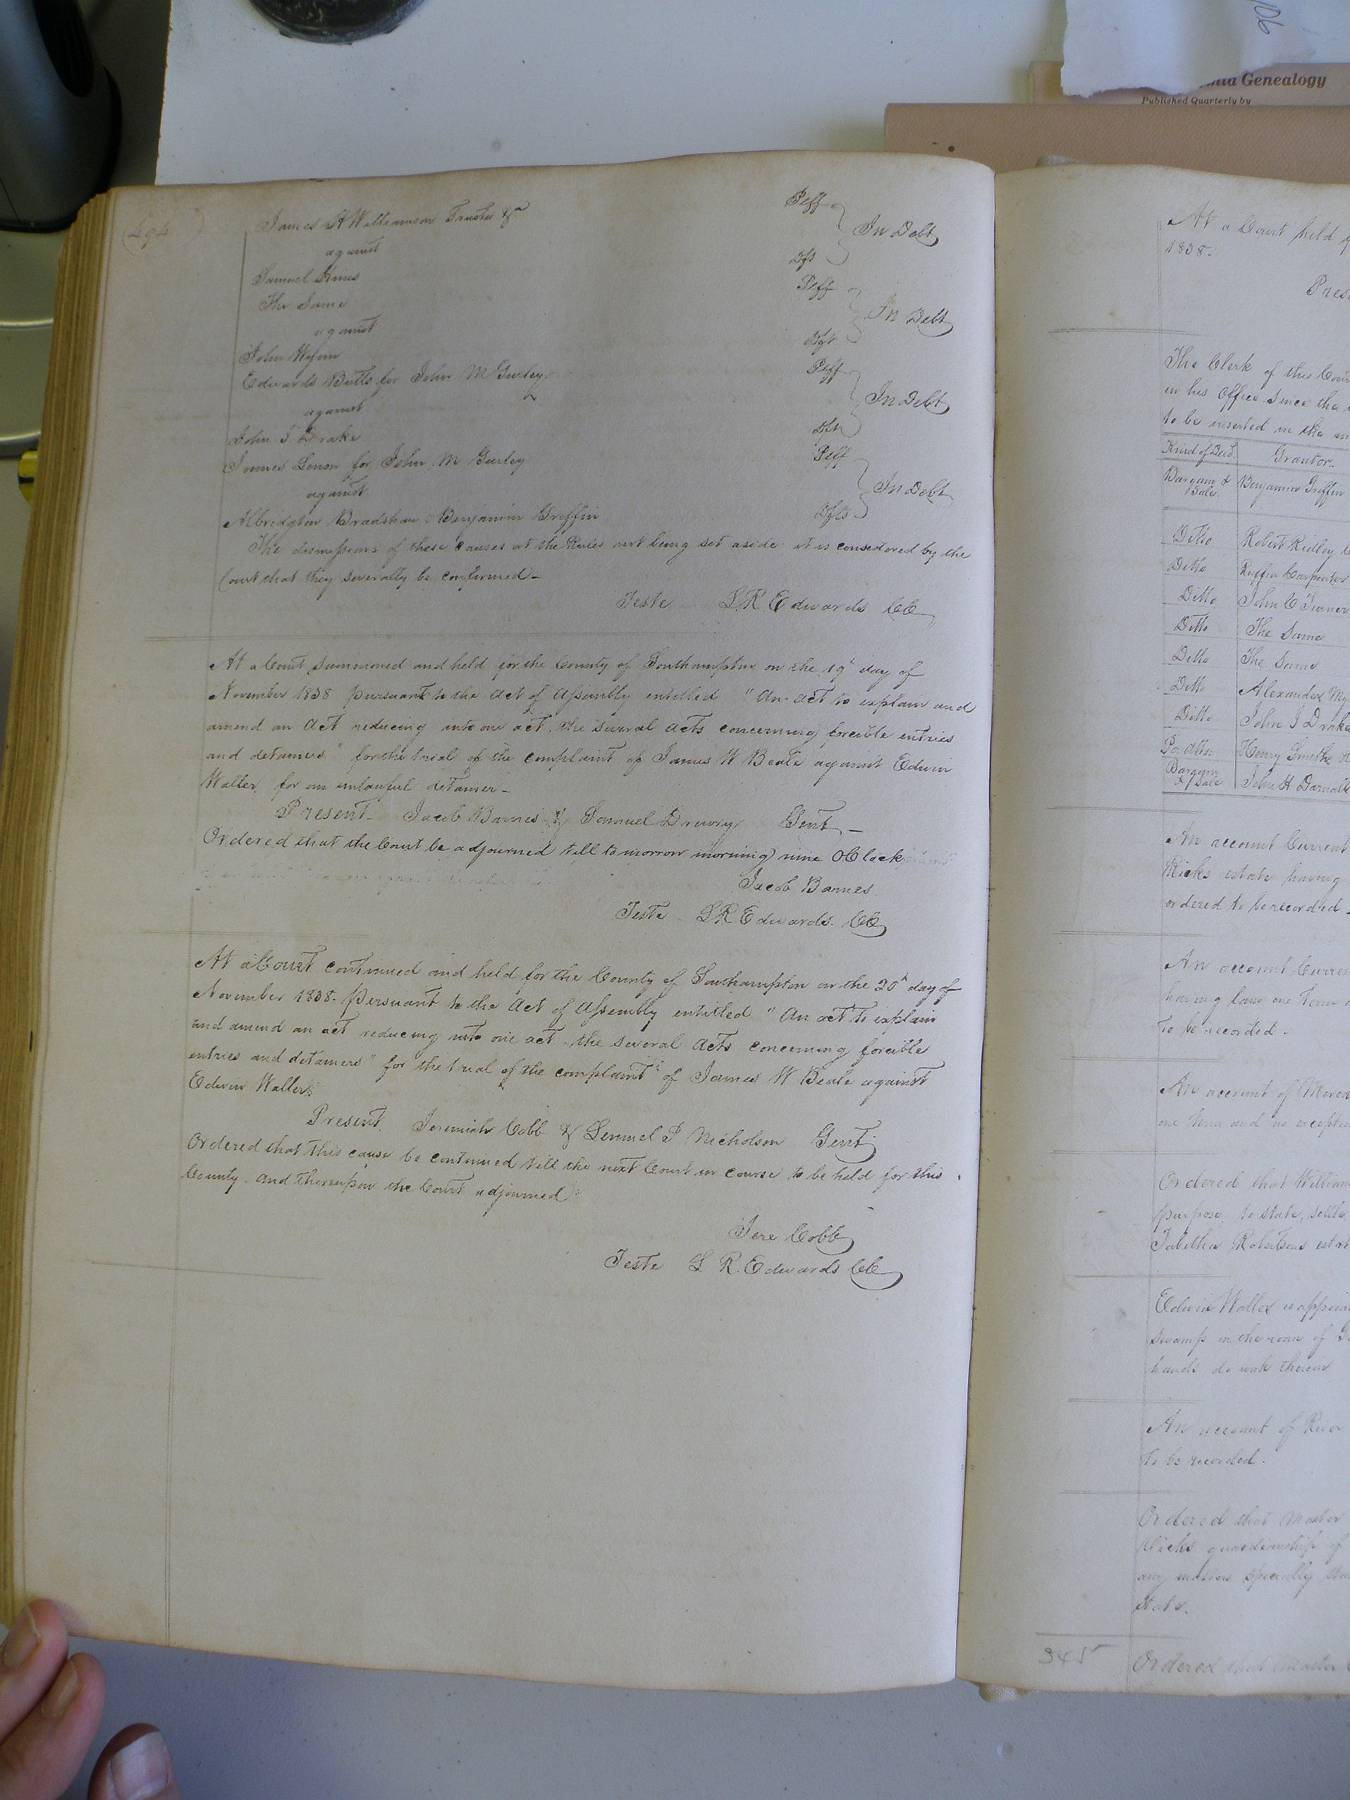 106
Genealogy
Published Quarterly by
James H Williamson Trustee &c Pltff
against In Debt
Samuel Dft
The Same Pltff
against In Debt
John Dft
Edwards Butts for John M Gurley Pltff
against In Debt
John T Drake Dft
James for John M Gurley Pltff
against In Debt
Albridgton Bradshaw Benjamin Griffin Dfts
The dismissions of these causes at the Rules not being set aside it is considered by the
Court that they severally be confirmed -
Teste L R Edwards CC
At a Court Summoned and held for the County of Southampton on the 19th day of
November 1838 pursuant to the act of Assembly entitled "An act to explain and
amend an act reducing into one act, the several acts concerning forcible entries
and detainers" for the trial of the complaint of James W Beale against Edwin
Waller for an unlawful detainer -
Present Jacob Barnes & Samuel Drewry Gent -
Ordered that the Court be adjourned till tomorrow morning nine OClock
Jacob Barnes
Teste L R Edwards CC
At a Court continued and held for the County of Southampton on the 20th day of
November 1838. Persuant to the Act of Assembly entitled "An act to explain
and amend an act reducing into one act the several acts concerning forcible
entries and detainers" for the trial of the complaint of James W Beale against
Edwin Waller
Present Jeremiah Cobb & Lemuel P Nicholson Gent
Ordered that this cause be continued till the next Court in course to be held for this
County. And thereupon the Court adjourned
Jere Cobb
Teste L R Edwards CC
At a Court held
1838.
Pres
The Clerk of this Cou
in his Office Since the
to be inserted in the
Kind of Deed. Grantor.
Bargain & Sale Benjamin Griffin
Ditto Robert Ridley
Ditto Ruffin Carpenter
Ditto John C Turner
Ditto The Same
Ditto The Same
Ditto Alexander My
Ditto John T Drake
Henry Smith
Bargain & Sale John H Darnall
An account Current
Ricks estate having
ordered to be recorded -
An account Curren
having lain one Term
to be recorded -
An account of
one term and no exceptio
Ordered that William
purpose, to state, settle,
Tabitha Robertsons estat
Edwin Waller is appoin
Swamp in the room of
hands do work thereon
An account of
to be recorded.
Ordered that
guardianship of
any matters specially
Stats.
345
Ordered that